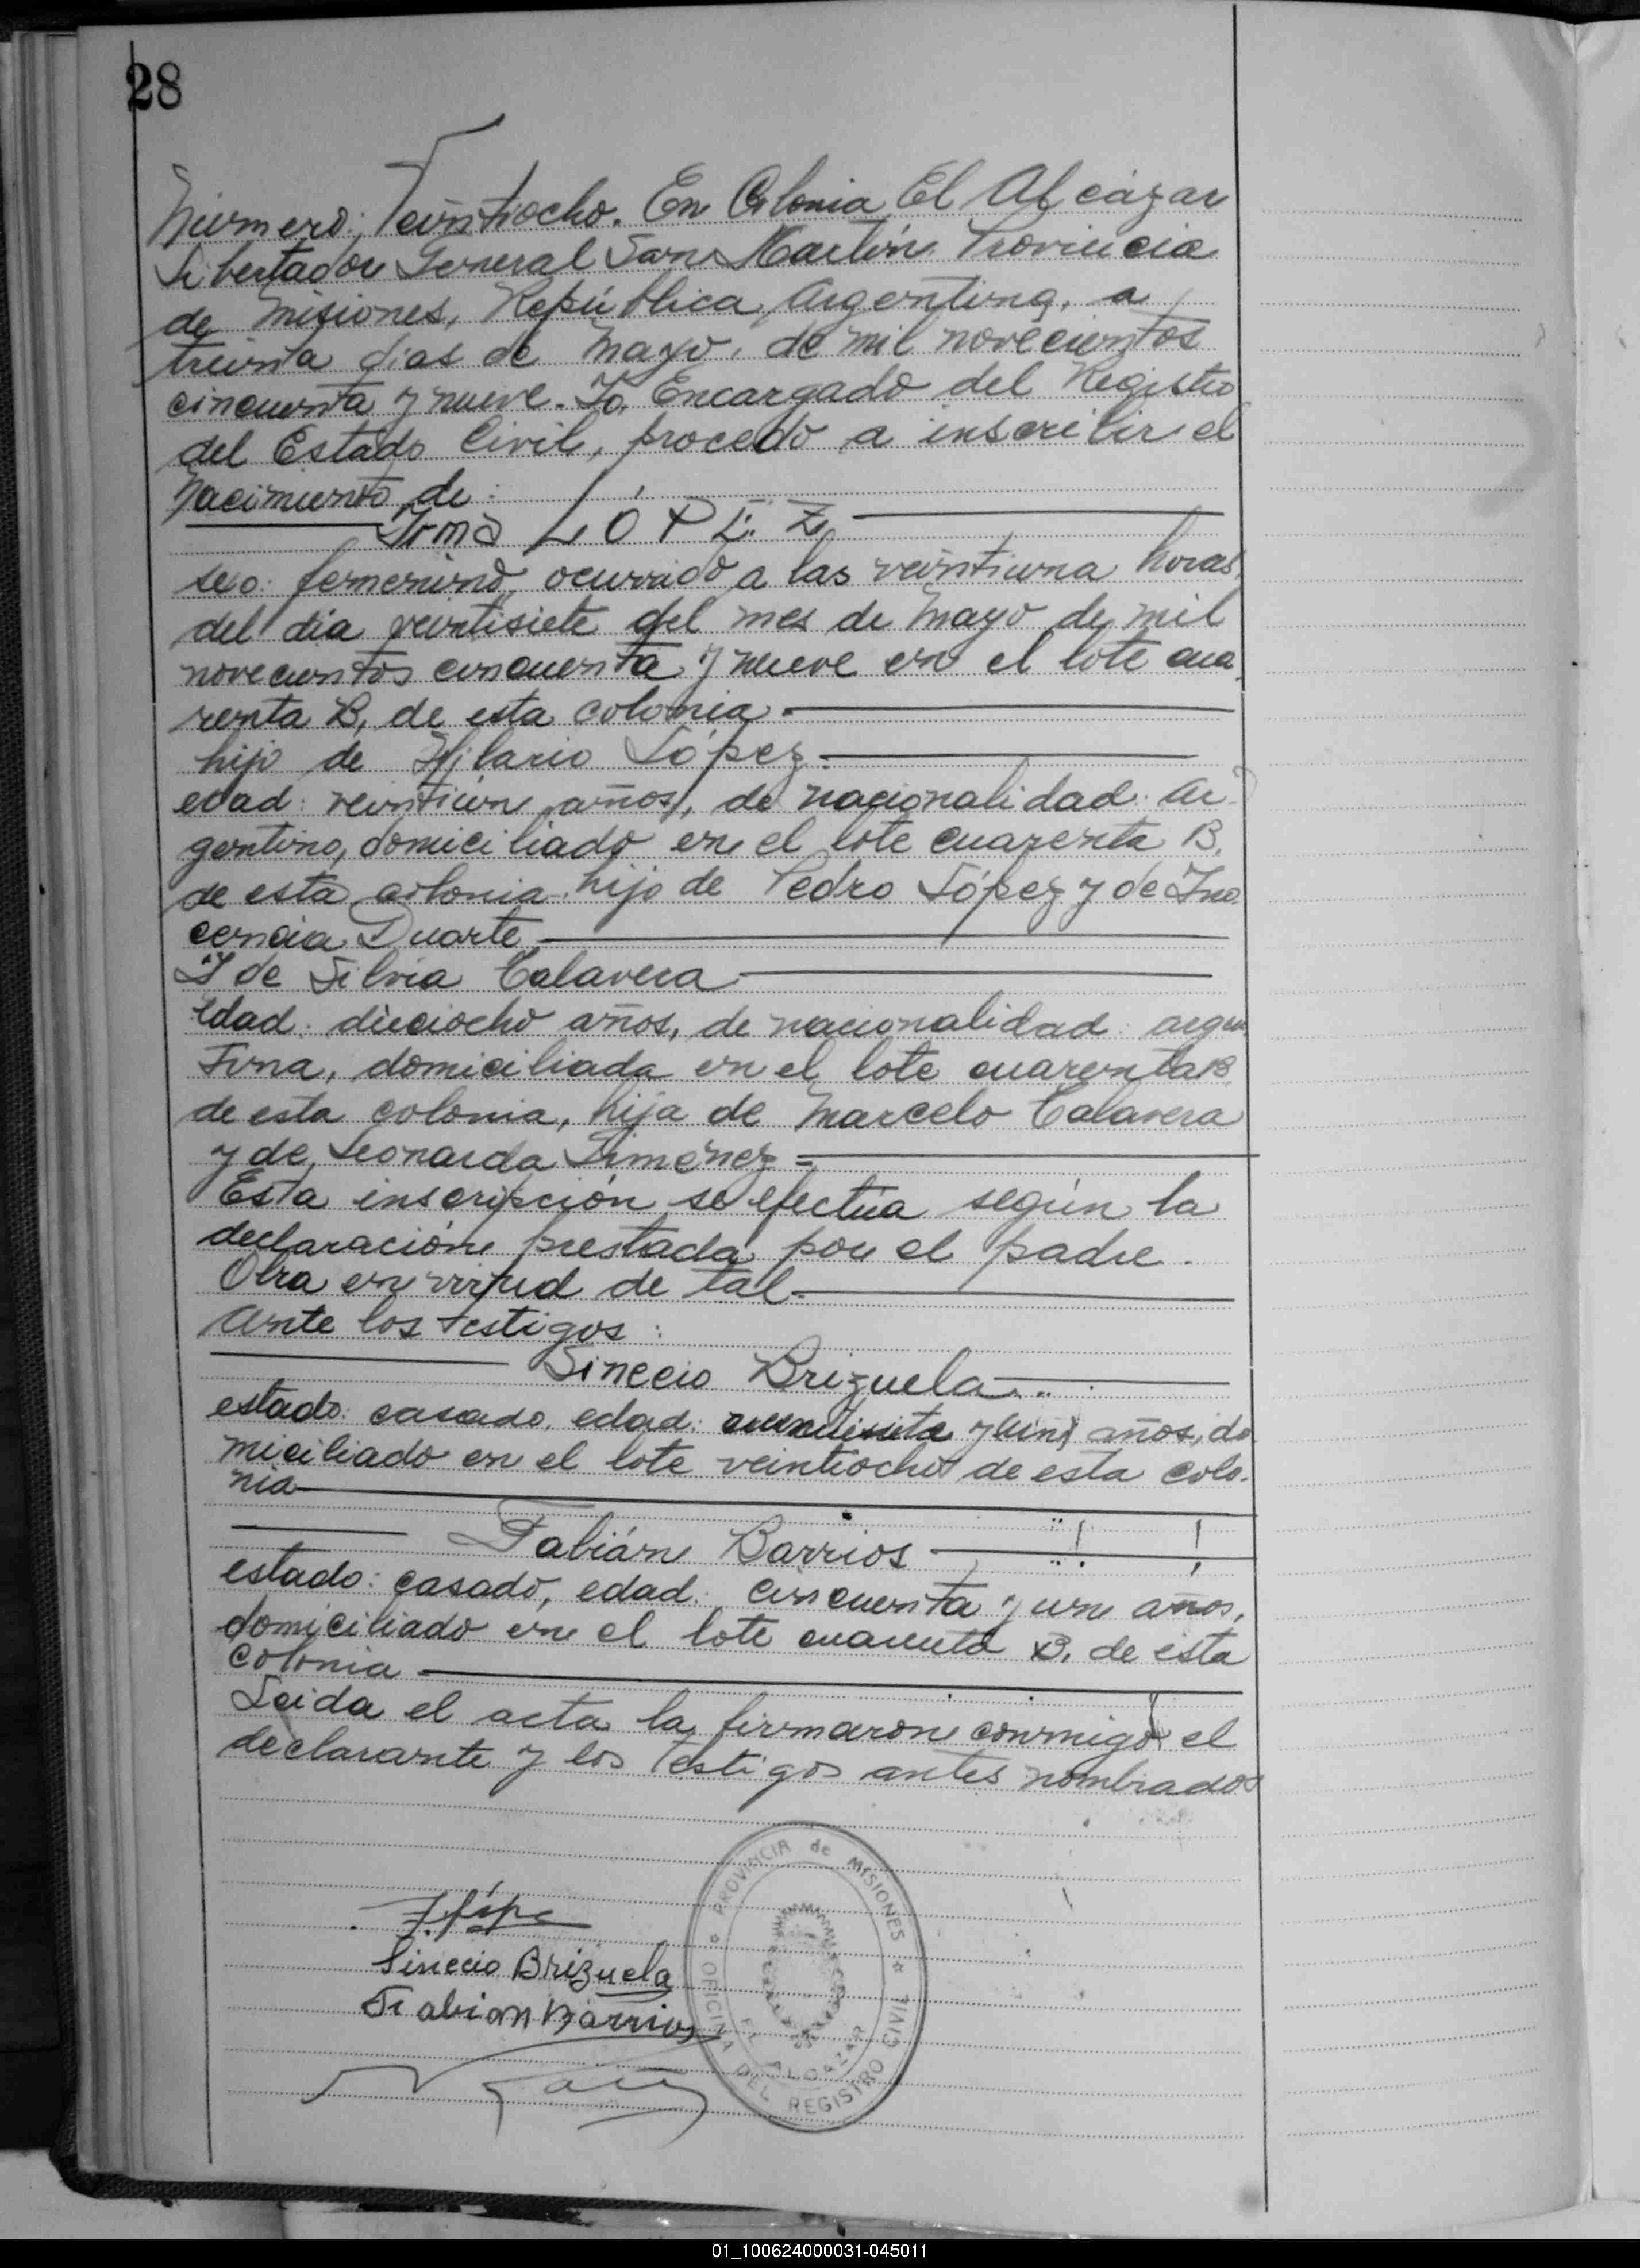 28
Número: Veintiocho. En Colonia El Alcázar
Libertador General San Martín Provincia
de Misiones, República Argentina, a
treinta dias de Mayo, de mil novecientos
cincuenta y nueve. Yo, Encargado del Registro
del Estado Civil, procedo a inscribir el
Nacimiento de:
Irma LÓPEZ
sexo: femenino, ocurrido a las veintiuna horas
del dia veintisiete del mes de Mayo de mil
novecientos cincuenta y nueve en el lote cua
renta B, de esta colonia.
hijo de Hilario López.
edad: veintiun años, de nacionalidad: Ar-
gentino, domiciliado en el lote cuarenta B.
de esta colonia. hijo de Pedro López y de Ino
cencia Duarte.
Y de Silvia Talavera
Edad: dieciocho años, de nacionalidad: argen
tina, domiciliada en el lote cuarenta B
de esta colonia, hija de Marcelo Talavera
y de Leonarda Jiménez =
Esta inscripción se efectúa según la
declaración prestada por el padre.
Obra en virtud de tal.
Ante los testigos:
Sinecio Brizuela
estado: casado, edad: y años, do
miciliado en el lote veintiocho de esta colo-
nia
Fabián Barrios
estado: casado, edad: cincuenta y un años,
domiciliado en el lote cuarenta B. de esta
Colonia
Leida el acta la firmaron conmigo el
declarante y los testigos antes nombrados
Sinecio Brizuela
Fabian Barrios
PROVINCIA de MISIONES
OFICINA DEL REGISTRO CIVIL
EL ALCAZAR
01_100624000031-045011